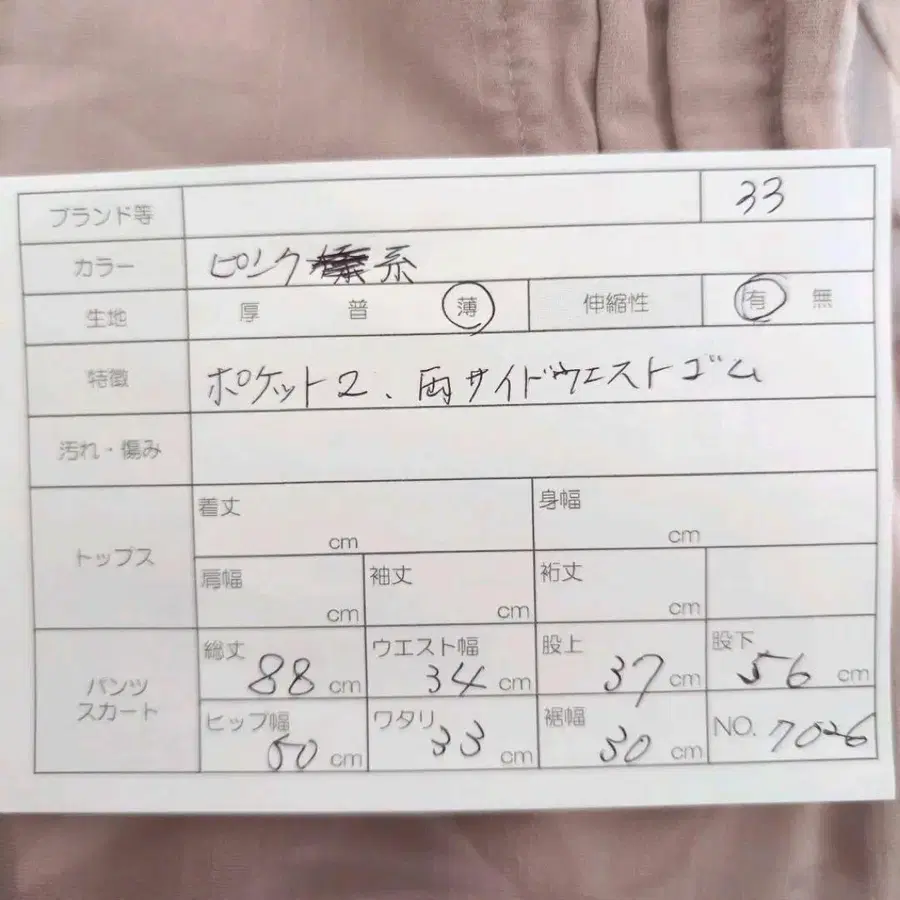 ブランド等 33
カラー ピンク系
生地 厚 普 薄 伸縮性 有 無
特徴 ポケット2、両サイドウエストゴム
汚れ・傷み
トップス
着丈 cm 身幅 cm
肩幅 cm 袖丈 cm 裄丈 cm
パンツ
スカート
総丈 88 cm ウエスト幅 34 cm 股上 37 cm 股下 56 cm
ヒップ幅 50 cm ワタリ 33 cm 裾幅 30 cm NO. 7026